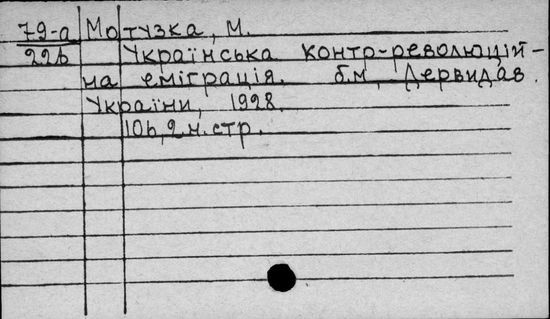 79-а Мотузка, М.
22б Українська контр-революцій-
на еміграція. б.м, Держвидав.
України, 1928.
106, 2 н. стр.